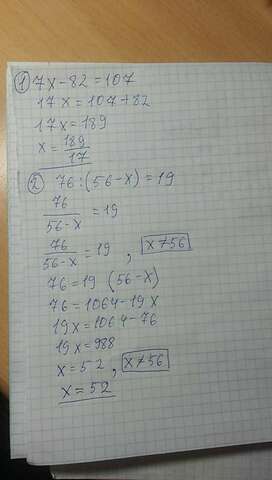 ① 7x-82=107
17x=107+82
17x=189
x=189/17
② 76:(56-x)=19
76/56-x=19
76/56-x=19, x≠56
76=19 (56-x)
76=1064-19x
19x=1064-76
19x=988
x=52, x≠56
x=52